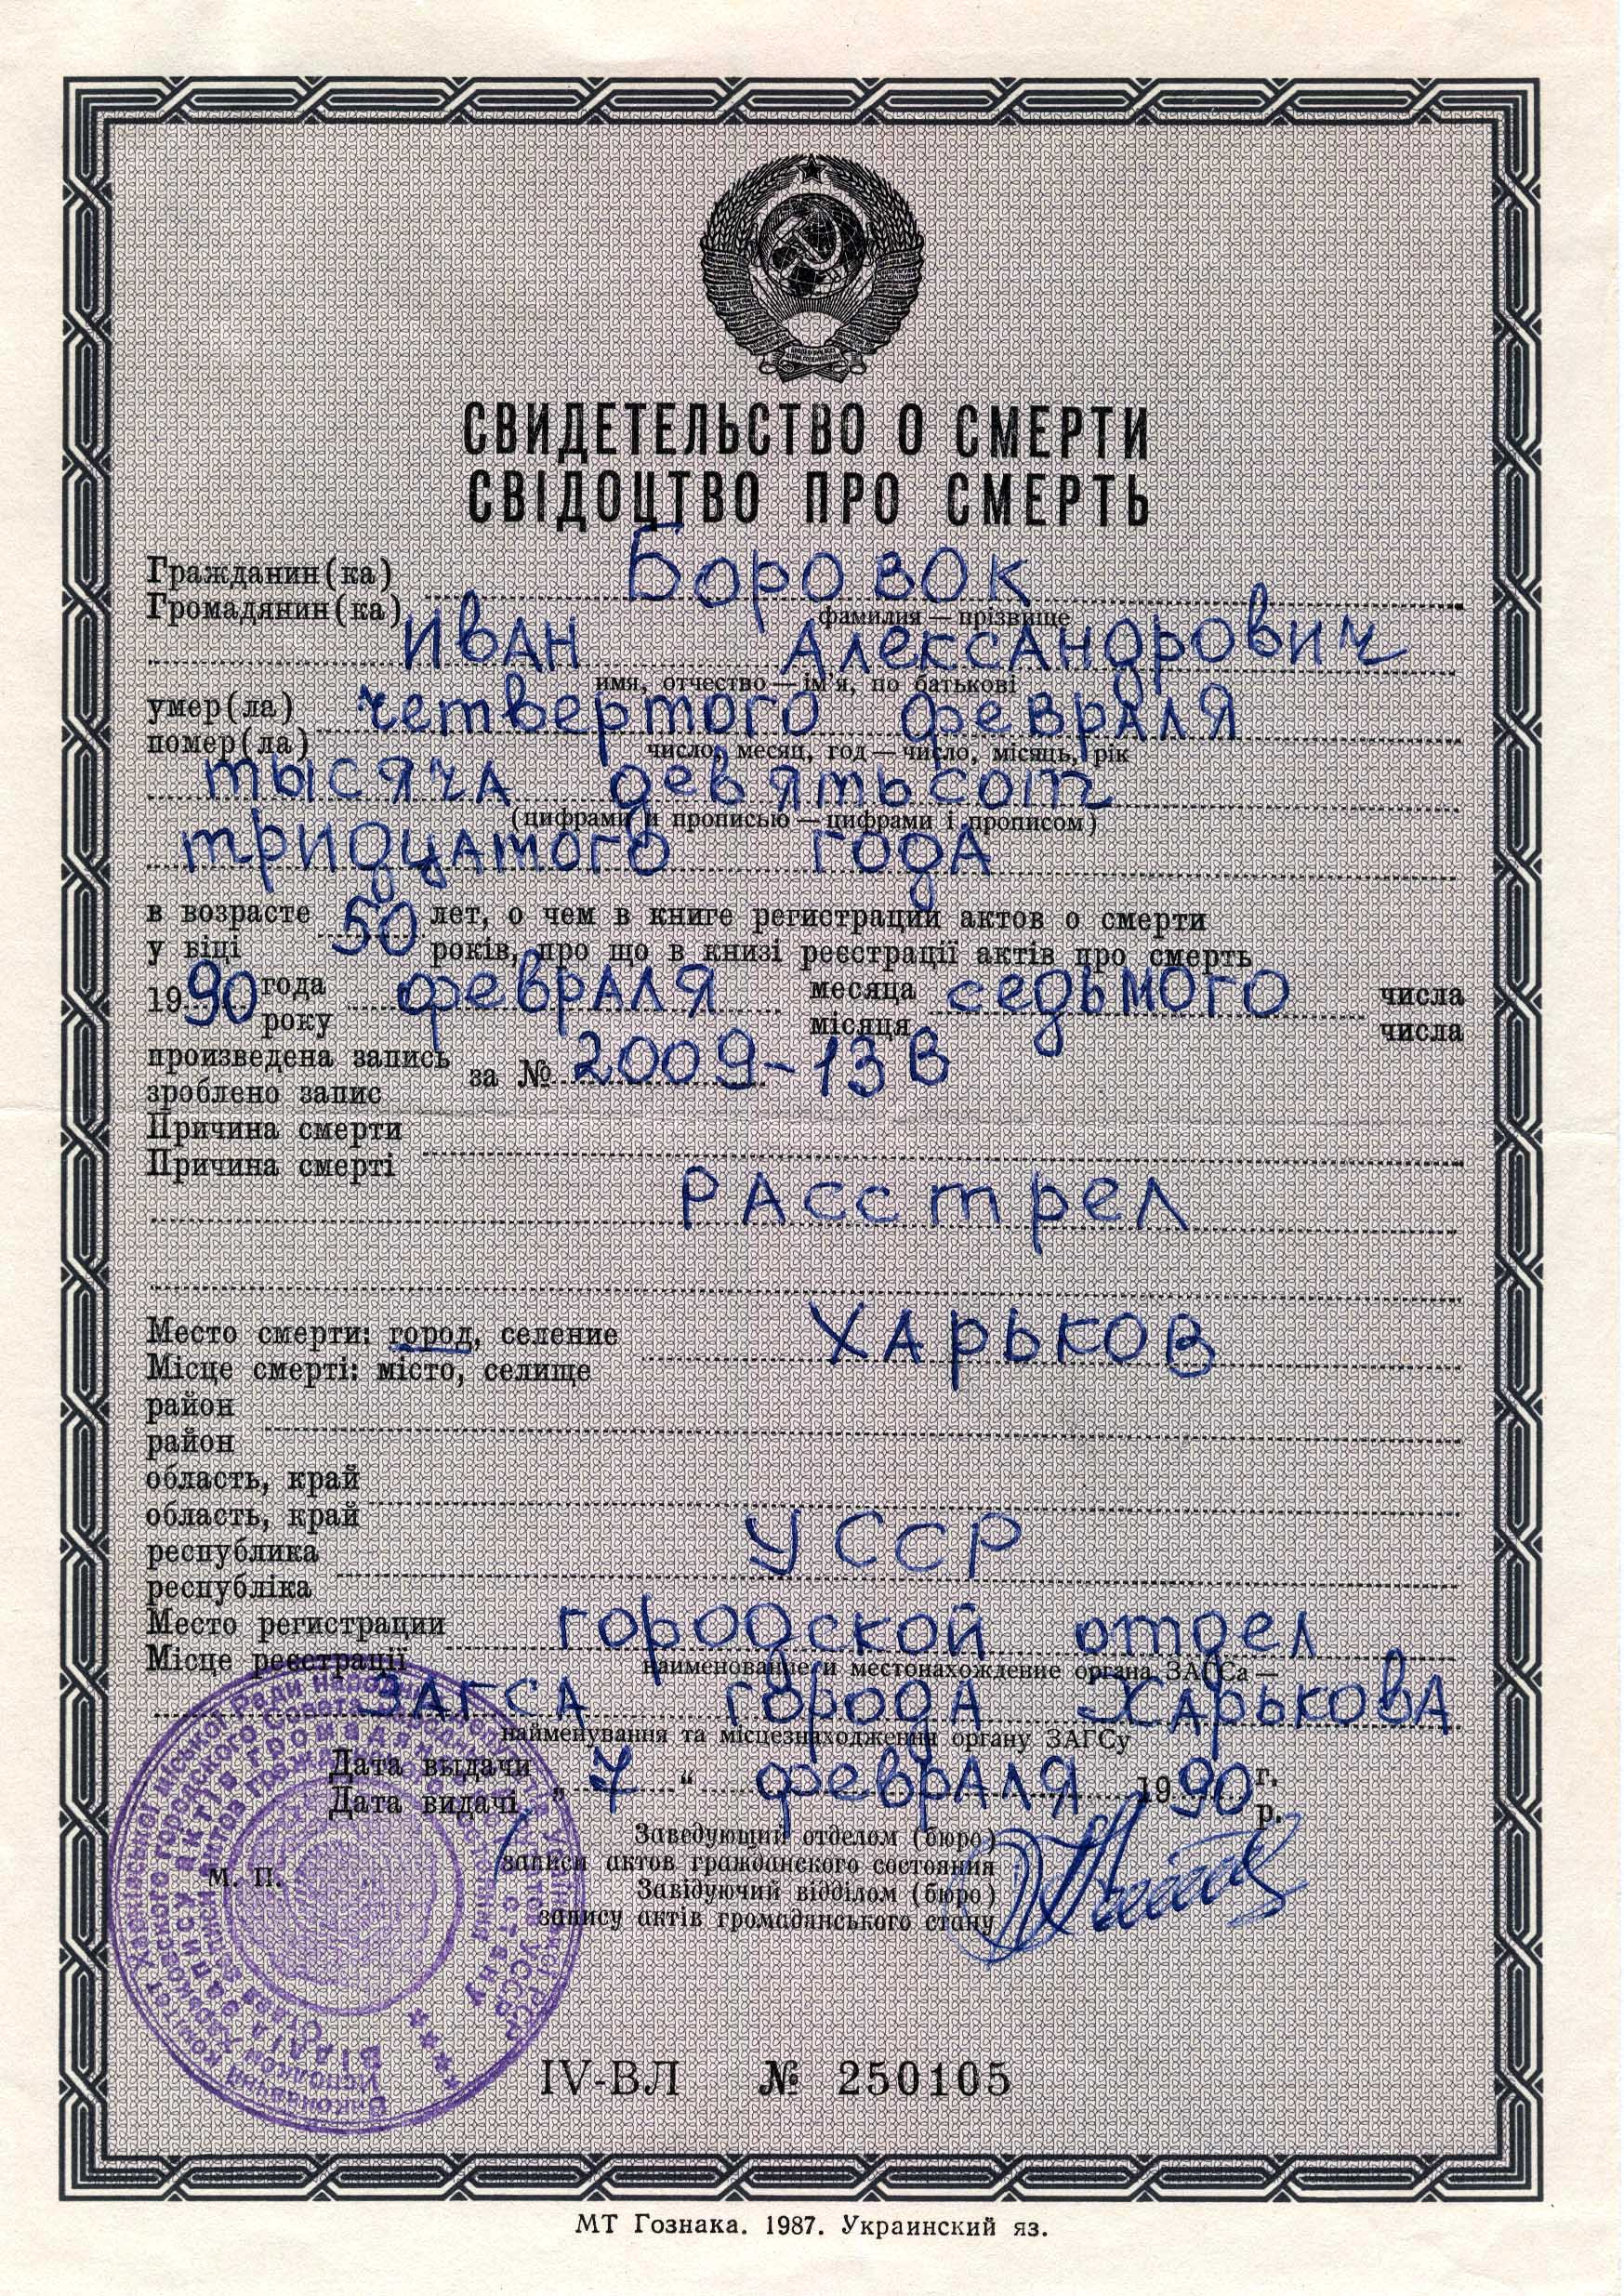 СВИДЕТЕЛЬСТВО О СМЕРТИ
СВІДОЦТВО ПРО СМЕРТЬ
Гражданин(ка) Боровок
Громадянин(ка)
фамилия — прізвище
Иван Александрович
имя, отчество — ім'я, по батькові
умер(ла) четвертого февраля
помер(ла)
число, месяц, год — число, місяць, рік
тысяча девятьсот
(цифрами и прописью — цифрами і прописом)
тридцатого года
в возрасте 50 лет, о чем в книге регистрации актов о смерти
у віці років, про що в книзі реєстрації актів про смерть
1990 года февраля месяца седьмого числа
року місяця числа
произведена запись за № 2009-13В
зроблено запис
Причина смерти
Причина смерті
Расстрел
Место смерти: город, селение Харьков
Місце смерті: місто, селище
район
район
область, край
область, край
республика УССР
республіка
Место регистрации городской отдел
Місце реєстрації
наименование и местонахождение органа ЗАГСа —
ЗАГСа города Харькова
найменування та місцезнаходження органу ЗАГСу
Дата выдачи „ 7 “ февраля 1990 г.
Дата видачі р.
Заведующий отделом (бюро)
записи актов гражданского состояния
Завідуючий відділом (бюро)
запису актів громадянського стану
М. П.
IV-ВЛ № 250105
МТ Гознака. 1987. Украинский яз.